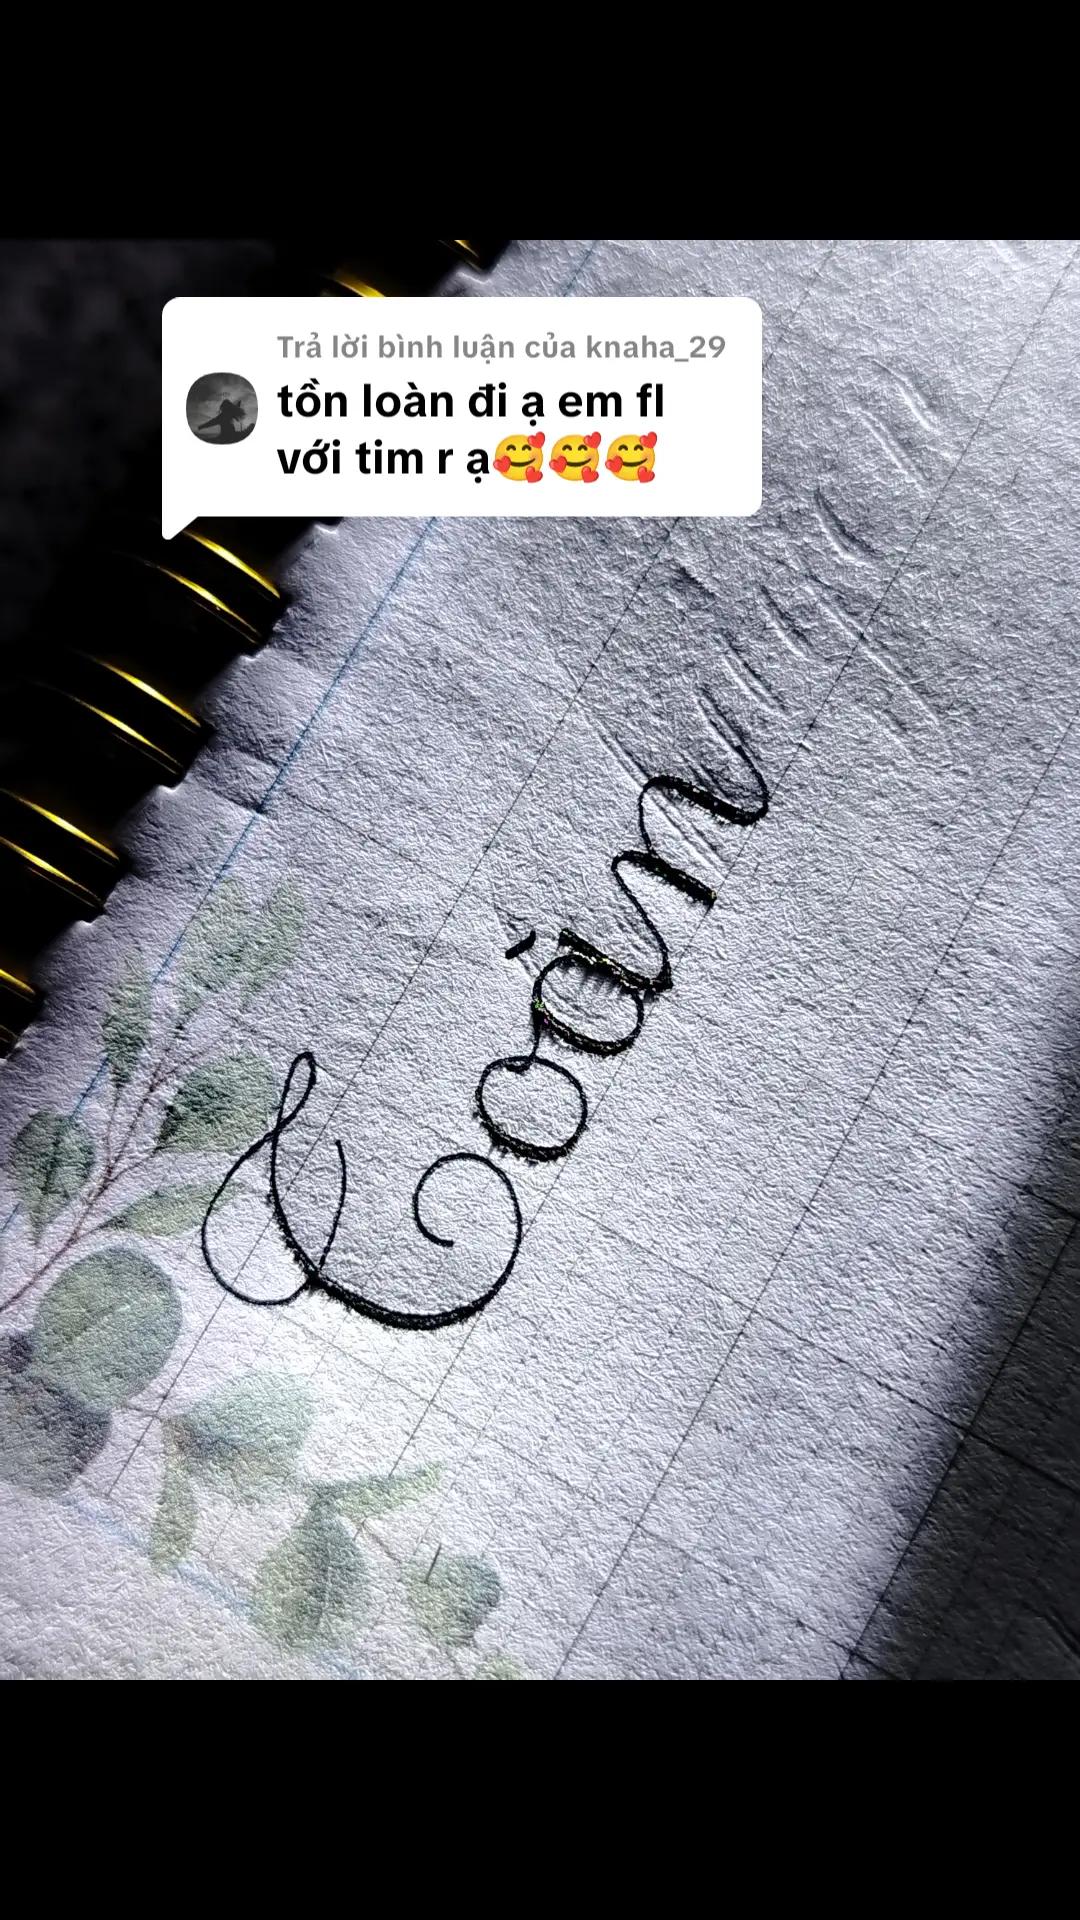 Trả lời bình luận của knaha_29
tồn loàn đi ạ em fl
với tim r ạ🥰🥰🥰
Toàn